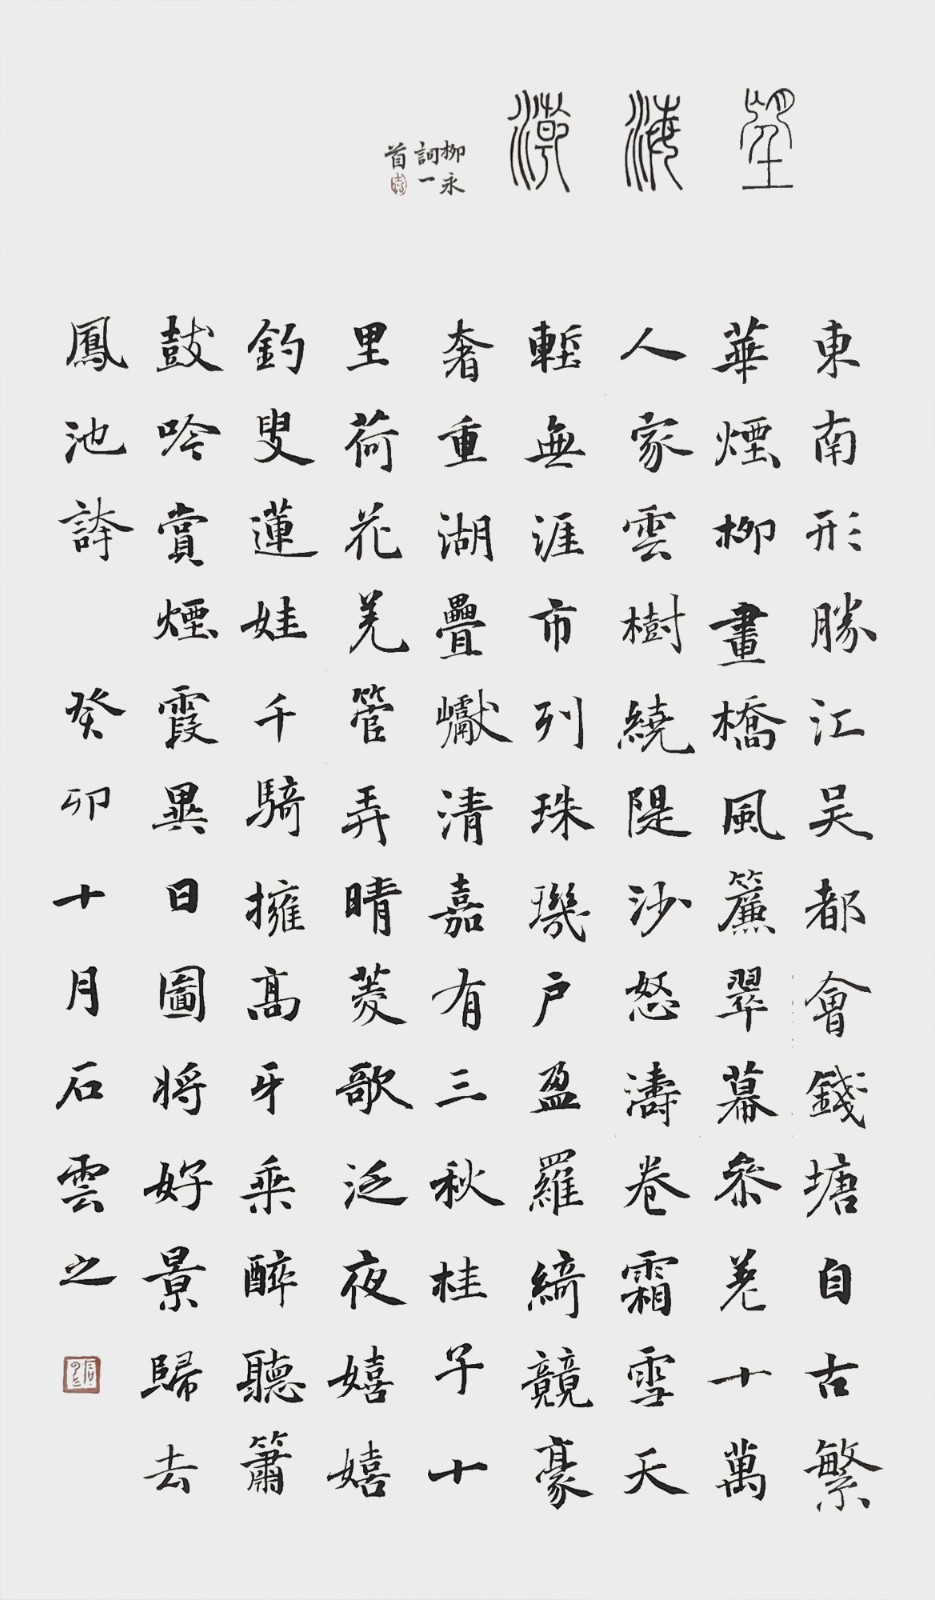 望海潮
柳永
詞一
首
東南形勝江吴都會錢塘自古繁
華煙柳畫橋風簾翠幕參差十萬
人家雲樹繞隄沙怒濤卷霜雪天
塹無涯市列珠璣户盈羅綺競豪
奢重湖疊巘清嘉有三秋桂子十
里荷花羌管弄晴菱歌泛夜嬉嬉
釣叟蓮娃千騎擁髙牙乘醉聽簫
鼓吟賞煙霞異日圖将好景歸去
鳳池誇 癸卯十月石雲之